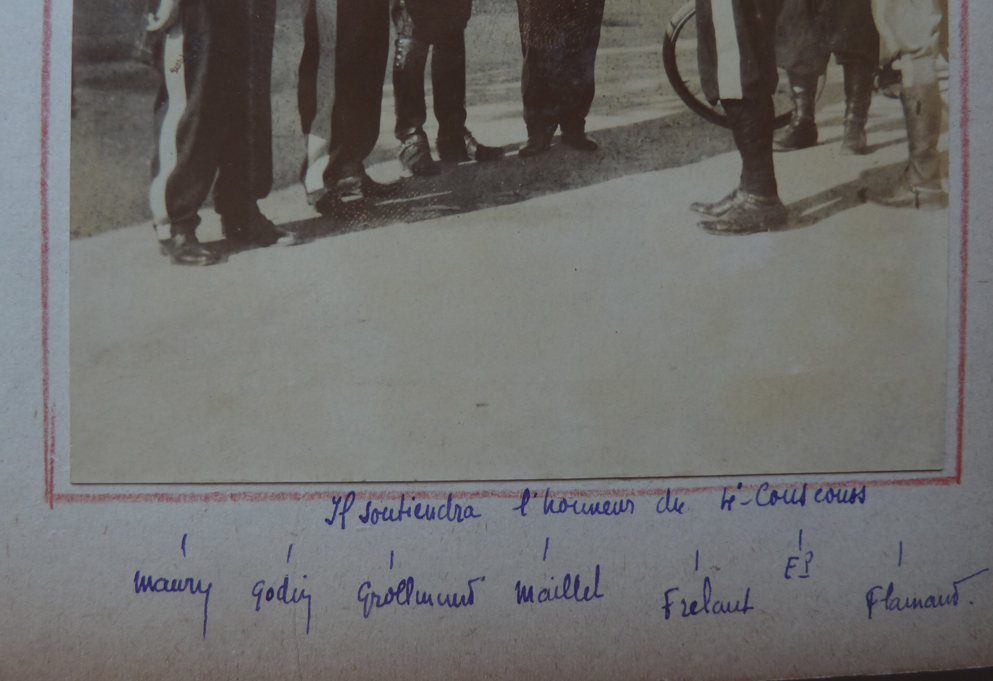 Il soutiendra l'honneur du 4e-Couscouss
Maury Godin Gröllmund Maillet Frelaut E? Flamand.